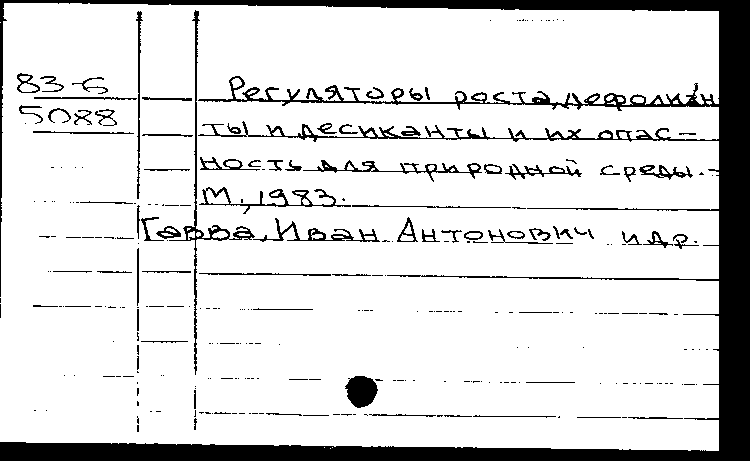 83-6
5088
Регуляторы роста, дефолиан
ты и десиканты и их опас-
ность для природной среды.-
М., 1983.
Гавва, Иван Антонович и др.